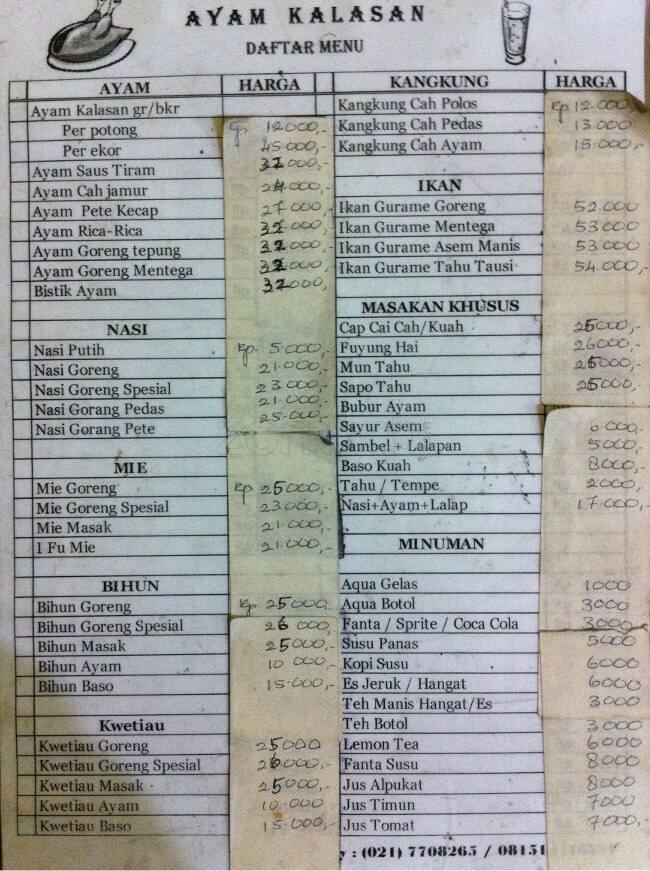 AYAM KALASAN
DAFTAR MENU
AYAM HARGA
Ayam Kalasan gr/bkr
Per potong Rp. 12000,-
Per ekor 45.000,-
Ayam Saus Tiram 32000,-
Ayam Cah jamur 24.000,-
Ayam Pete Kecap 27000,-
Ayam Rica-Rica 32.000,-
Ayam Goreng tepung 32000,-
Ayam Goreng Mentega 32000,-
Bistik Ayam 32000,
NASI
Nasi Putih Rp. 5.000,-
Nasi Goreng 21.000,-
Nasi Goreng Spesial 23.000,-
Nasi Gorang Pedas 21.000,-
Nasi Gorang Pete 25.000,-
MIE
Mie Goreng Rp. 25000,-
Mie Goreng Spesial 23.000,-
Mie Masak 21.000,-
I Fu Mie 21.000,-
BIHUN
Bihun Goreng Rp. 25000,
Bihun Goreng Spesial 26 000,-
Bihun Masak 25000,-
Bihun Ayam 10 000,-
Bihun Baso 15.000,-
Kwetiau
Kwetiau Goreng 25000
Kwetiau Goreng Spesial 26000,-
Kwetiau Masak 25000,-
Kwetiau Ayam 10.000
Kwetiau Baso 15.000,-
KANGKUNG HARGA
Kangkung Cah Polos Rp 12.000,
Kangkung Cah Pedas 13.000
Kangkung Cah Ayam 15.000,-
IKAN
Ikan Gurame Goreng 52.000
Ikan Gurame Mentega 53000
Ikan Gurame Asem Manis 53000
Ikan Gurame Tahu Tausi 54.000,-
MASAKAN KHUSUS
Cap Cai Cah/Kuah 25000,-
Fuyung Hai 26000,-
Mun Tahu 25000,-
Sapo Tahu 25000,-
Bubur Ayam
Sayur Asem 6000,-
Sambel + Lalapan 5000,-
Baso Kuah 8000,-
Tahu / Tempe 2000,-
Nasi+Ayam+Lalap 17.000,-
MINUMAN
Aqua Gelas 1000
Aqua Botol 3000
Fanta / Sprite / Coca Cola 3000
Susu Panas 5000
Kopi Susu 6000
Es Jeruk / Hangat 6000
Teh Manis Hangat/Es 3000
Teh Botol 3000
Lemon Tea 6000
Fanta Susu 8000
Jus Alpukat 8000
Jus Timun 7000
Jus Tomat 7000,-
y : (021) 7708265 / 08151